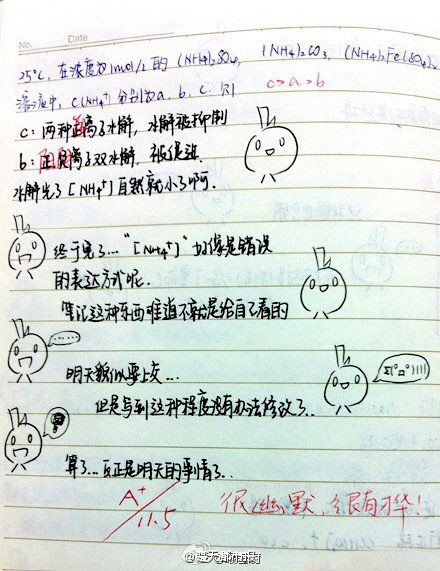 No. Date
25℃,在浓度为1mol/L的 (NH4)2SO4, (NH4)2CO3, (NH4)2Fe(SO4)2
溶液中,c(NH4+)分别为a、b、c. 则
c>a>b
c:两种阳离子水解,水解被抑制
b:正负离子双水解,被促进.
水解完了[NH4+]自然就小了啊.
终于完了..."[NH4+]"好像是错误
的表达方式呢.
笔记这种东西难道不就是给自己看的
......
明天貌似要上交...
Σ(°□°)!!!!
但是写到这种程度没有办法修改了..
算了...反正是明天的事情了..
A+
11.5
很幽默,很有才华!